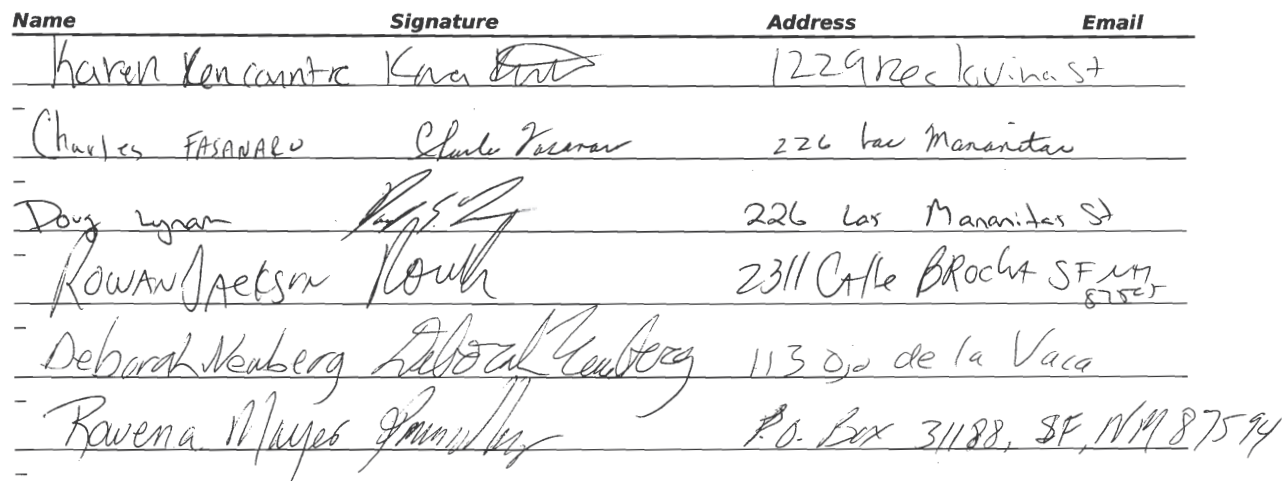 Name Signature Address Email
Karen St
Charles FASANARO Charles Fasanaro 226 Las Mananitas
Doug Lynam 226 Las Mananitas St
ROWAN JAcKSoN 2311 CAlle BROCHA SF NM
87505
Deborah Newberg Deborah Newberg 113 Ojo de la Vaca
Rowena Mayes P.O. Box 31188, SF, NM 87594